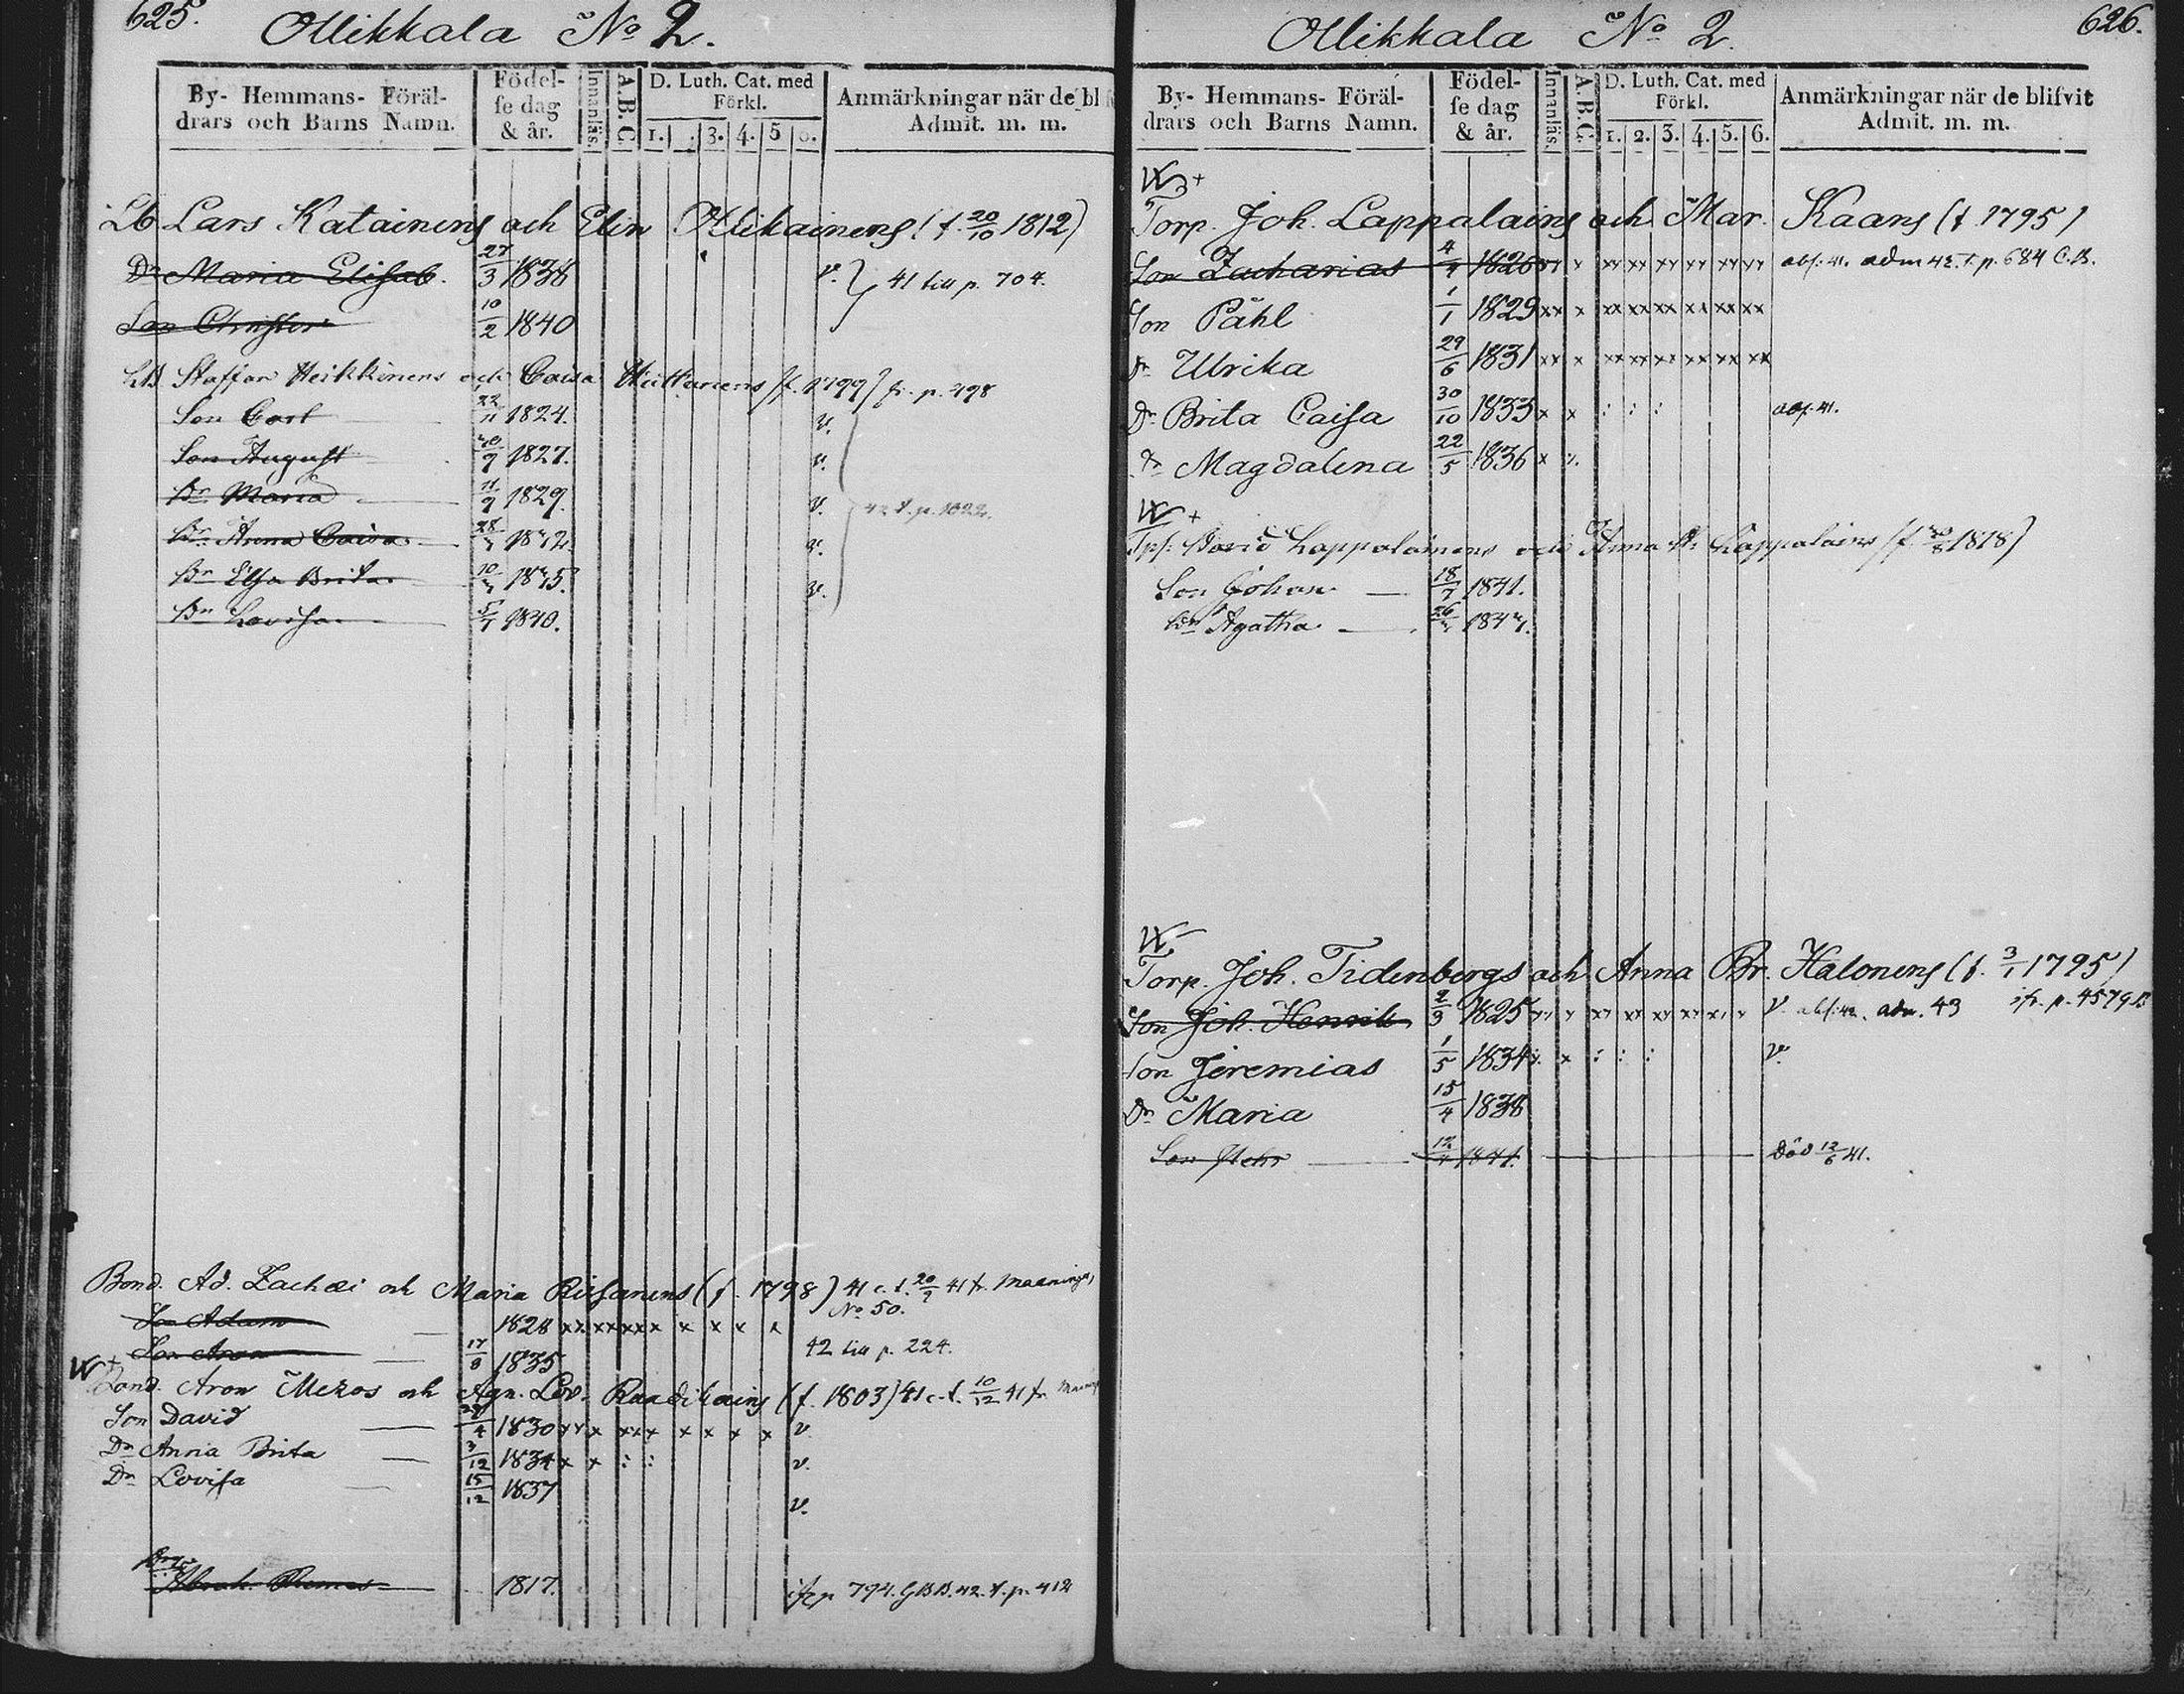 625.
Ollikkala No 2.
By- Hemmans- Föräl-
drars och Barns Namn.
Födel-
se dag
& år.
Innanläs.
A.B.C
D. Luth. Cat. med
Förkl.
1. 3. 4. 5
Anmärkningar när de bl
Admit. m. m.
Lb Lars Katainens och Elin (f. 20/10 1812)
Dr Maria Elisab. 27/3 1838 v. } 41 till p. 704.
Son Christer 10/2 1840
Staffan Heikkinens och Caisa (f. 1799) fr. p. 498
Son Carl 22/11 1824. v.
Son August 1827. v.
Dr Maria 11/9 1829. v. 42 t. p. 1022.
Dr Anna Caisa 28/ 1832 v.
Dr Elsa Brita 10/ 1835. v.
Dr Lovisa 5/1 1840.
Bond. Ad. Zachæi och Maria Riisanens (f. 1798) 41 c. t. 20/9 41 fr. Maaninga,
No 50.
Son Adam 1828 xx xx xx x x x x x
Son Aron 17/8 1835 42 till p. 224.
Bond. Aron Mezos och Agn. Lov. Raadikains (f. 1803) 41 c. t. 10/12 41 fr.
Son David 29/4 1830 xx x xx x x x x x v
Dr Anna Brita 3/12 1834 x x : : v.
Dr Lovisa 15/12 1837 v.
Drg
Abrah. 1817. ifr p 794. 42. t. p. 412
626.
Ollikkala No 2.
By- Hemmans- Föräl-
drars och Barns Namn.
Födel-
se dag
& år.
Innanläs.
A.B.C.
D. Luth. Cat. med
Förkl.
1. 2. 3. 4. 5. 6.
Anmärkningar när de blifvit
Admit. m. m.
Torp. Joh. Lappalains och Mar. Kaans (f. 1795)
Son Zacharias 1826 xx x xx xx xx xx xx xx abs: 41. adm 42. t. p. 684 C.B.
Son Påhl 1/1 1829 xx x xx xx xx xx xx xx
Dr Ulrika 29/6 1831 xx x xx xx xx xx xx xx
Dr Brita Caisa 30/10 1833 x x : : : abs. 41.
Dr Magdalena 22/5 1836 x
David Lappalainens och Anna Lappalains (f. 1818)
Son Johan 18/7 1841.
Dr Agatha 26/ 1844.
Torp. Joh. Tidenbergs och Anna Br. Halonens (f. 3/1 1795)
Son Joh. Henrik 2/3 1825 xx x xx xx xx xx x x v. abs: 42. adm. 43 ifr. p. 457
Son Jeremias 1/5 1834 x. x : : : v.
Dr Maria 15/4 1838
Son Petr 12/4 1841. Död 12/6 41.